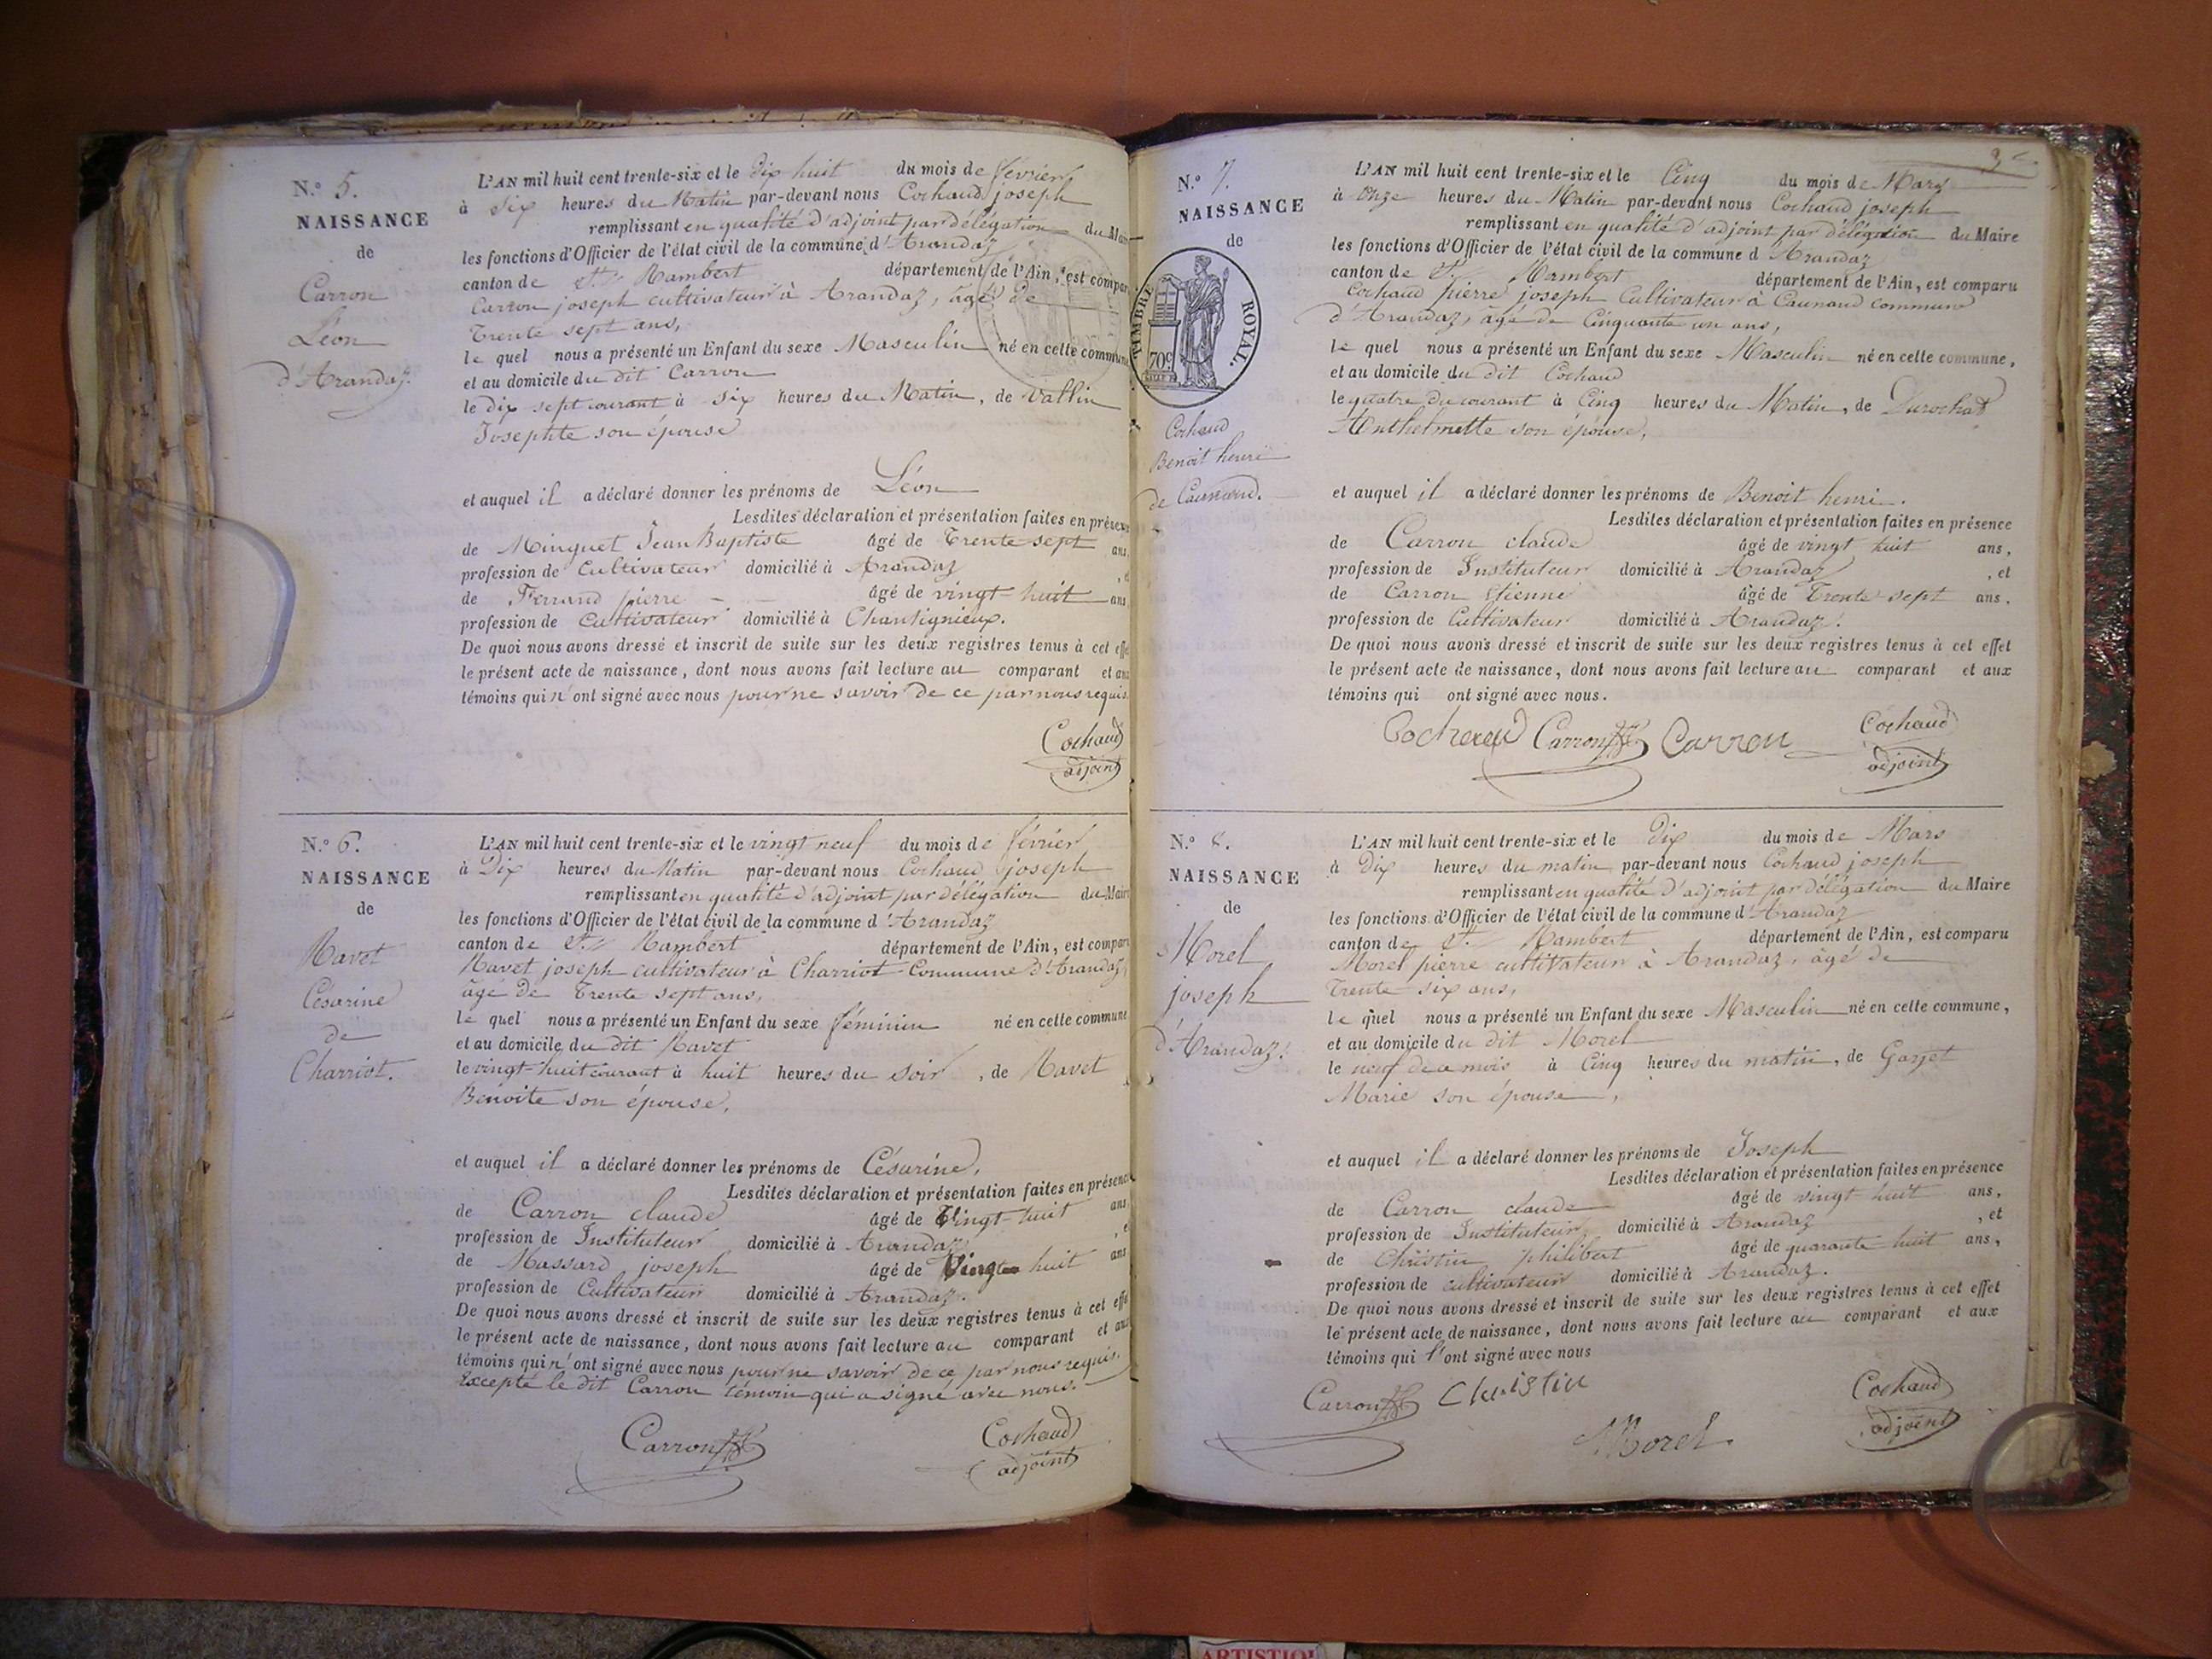 N.º 5.
NAISSANCE
de
Carron
Léon
d'Arandaz.
L'AN mil huit cent trente-six et le dix huit du mois de février
à Six heures du Matin par-devant nous Cochaud joseph
remplissant en qualité d'adjoint par délégation du Maire
les fonctions d'Officier de l'état civil de la commune d'Arandaz
canton de St. Rambert département de l'Ain, est compar
Carron joseph cultivateur à Arandaz, âgé de
Trente sept ans,
le quel nous a présenté un Enfant du sexe Masculin né en cette commune
et au domicile du dit Carron
le dix sept courant à six heures du Matin, de Vallin
Josephte son épouse
et auquel il a déclaré donner les prénoms de Léon
Lesdites déclaration et présentation faites en présence
de Minguet Jean Baptiste âgé de Trente sept ans,
profession de Cultivateur domicilié à Arandaz , et
de Ferrand pierre âgé de vingt huit ans
profession de Cultivateur domicilié à Chantignieux.
De quoi nous avons dressé et inscrit de suite sur les deux registres tenus à cet effe
le présent acte de naissance, dont nous avons fait lecture au comparant et aux
témoins qui n'ont signé avec nous pour ne savoir de ce par nous requis.
Cochaud
adjoint
N.º 6.
NAISSANCE
de
Ravet
Césarine
de
Charriot.
L'AN mil huit cent trente-six et le vingt neuf du mois de février
à Dix heures du Matin par-devant nous Cochaud joseph
remplissant en qualité d'adjoint par délégation du Maire
les fonctions d'Officier de l'état civil de la commune d'Arandaz
canton de St. Rambert département de l'Ain, est comparu
Ravet joseph cultivateur à Charriot Commune d'Arandaz,
âgé de Trente sept ans,
le quel nous a présenté un Enfant du sexe féminin né en cette commune
et au domicile du dit Ravet
le vingt-huit courant à huit heures du soir , de Ravet
Bénoite son épouse,
et auquel il a déclaré donner les prénoms de Césarine,
Lesdites déclaration et présentation faites en présence
de Carron claude âgé de Vingt-huit ans
profession de Instituteur domicilié à Arandaz , et
de Massard joseph âgé de Vingt huit ans
profession de Cultivateur domicilié à Arandaz.
De quoi nous avons dressé et inscrit de suite sur les deux registres tenus à cet effet
le présent acte de naissance, dont nous avons fait lecture au comparant et aux
témoins qui n'ont signé avec nous pour ne savoir de ce par nous requis.
Excepté le dit Carron témoin qui a signé avec nous.
Carron
Cochaud
adjoint
N.º 7.
NAISSANCE
de
TIMBRE ROYAL.
70c
Cochaud
Benoit henri
de Caunand.
L'AN mil huit cent trente-six et le Cinq du mois de Mars
à Onze heures du Matin par-devant nous Cochaud joseph
remplissant en qualité d'adjoint par délégation du Maire
les fonctions d'Officier de l'état civil de la commune d'Arandaz
canton de St. Rambert département de l'Ain, est comparu
Cochaud pierre joseph Cultivateur à Caunand commune
d'Arandaz, âgé de Cinquante un ans,
le quel nous a présenté un Enfant du sexe Masculin né en cette commune,
et au domicile du dit Cochaud
le quatre du courant à Cinq heures du Matin, de Durochat
Anthelmette son épouse,
et auquel il a déclaré donner les prénoms de Benoit henri.
Lesdites déclaration et présentation faites en présence
de Carron claude âgé de vingt huit ans,
profession de Instituteur domicilié à Arandaz , et
de Carron Etienne âgé de Trente sept ans.
profession de Cultivateur domicilié à Arandaz.
De quoi nous avons dressé et inscrit de suite sur les deux registres tenus à cet effet
le présent acte de naissance, dont nous avons fait lecture au comparant et aux
témoins qui ont signé avec nous.
Carron Carron Cochaud
adjoint
N.º 8.
NAISSANCE
de
Morel
joseph
d'Arandaz.
L'AN mil huit cent trente-six et le Dix du mois de Mars
à Dix heures du matin par-devant nous Cochaud joseph
remplissant en qualité d'adjoint par délégation du Maire
les fonctions d'Officier de l'état civil de la commune d'Arandaz
canton de St. Rambert département de l'Ain, est comparu
Morel pierre cultivateur à Arandaz, âgé de
Trente six ans,
le quel nous a présenté un Enfant du sexe Masculin né en cette commune,
et au domicile du dit Morel
le neuf de ce mois à Cinq heures du matin, de Garjet
Marie son épouse,
et auquel il a déclaré donner les prénoms de Joseph
Lesdites déclaration et présentation faites en présence
de Carron claude âgé de vingt huit ans,
profession de Instituteur domicilié à Arandaz , et
de Christin philibert âgé de quarante huit ans,
profession de cultivateur domicilié à Arandaz.
De quoi nous avons dressé et inscrit de suite sur les deux registres tenus à cet effet
le présent acte de naissance, dont nous avons fait lecture au comparant et aux
témoins qui l'ont signé avec nous
Carron Christin Cochaud
Morel adjoint